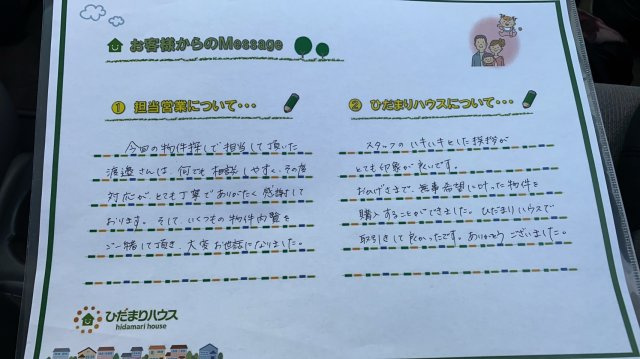 お客様からのMessage
① 担当営業について・・・
今回の物件探しで担当して頂いた
渡邉さんは、何でも相談しやすく、その度
対応が、とても丁寧でありがたく感謝して
おります。そして、いくつもの物件内覧を
ご一緒して頂き、大変お世話になりました。
② ひだまりハウスについて・・・
スタッフのハキハキとした挨拶が
とても印象が良いです。
おかげさまで、無事希望に叶った物件を
購入することができました。ひだまりハウスで
取引きして良かったです。ありがとうございました。
ひだまりハウス
hidamari house